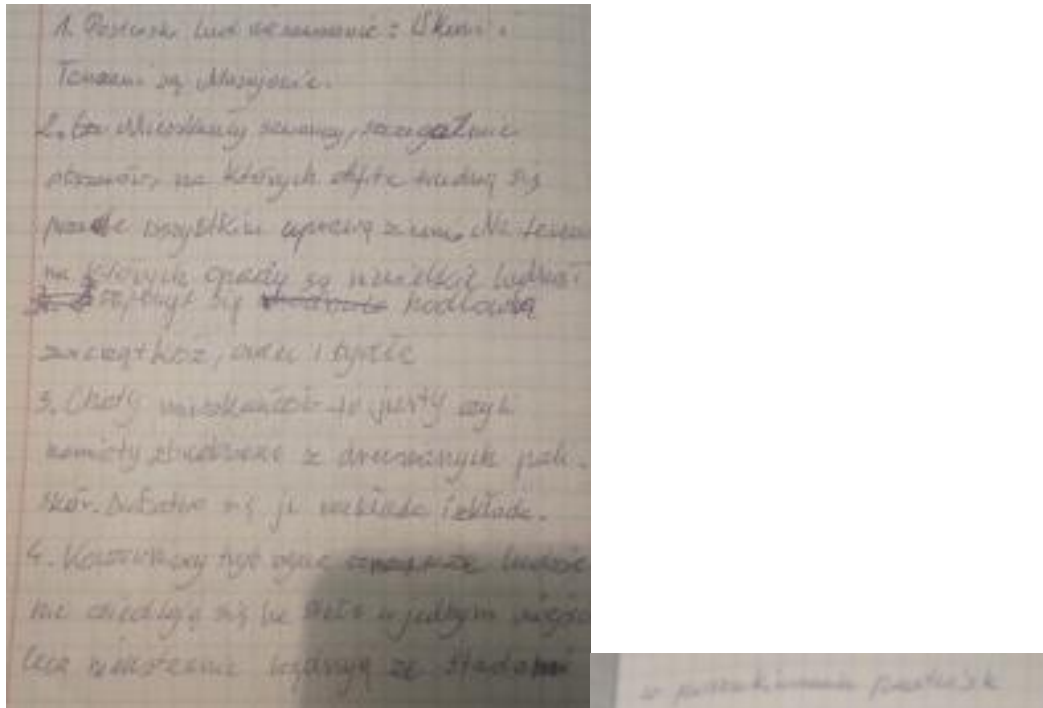 1. Pasterski lud w sawannie: w Kenii i
Tanzani są Masajowie.
2. Mieszkańcy sawanny, szczególnie
obszarów, na których obfite trudnią się
przede wszystkim uprawą ziemi. Na teren
na których opady są niewielkie ludność
zajmuje się hodowlą
zwierząt kóz, owiec i bydła
3. Chaty mieszkańców to jurty czyli
namioty zbudowane z drewnianych pali
skór. Łatwo się je rozkłada i składa.
4. Koczowniczy tryb życia ludzie
nie osiedlają się na stałe w jednym miejscu
lecz nieustannie wędrują ze stadami
w poszukiwaniu pastwisk